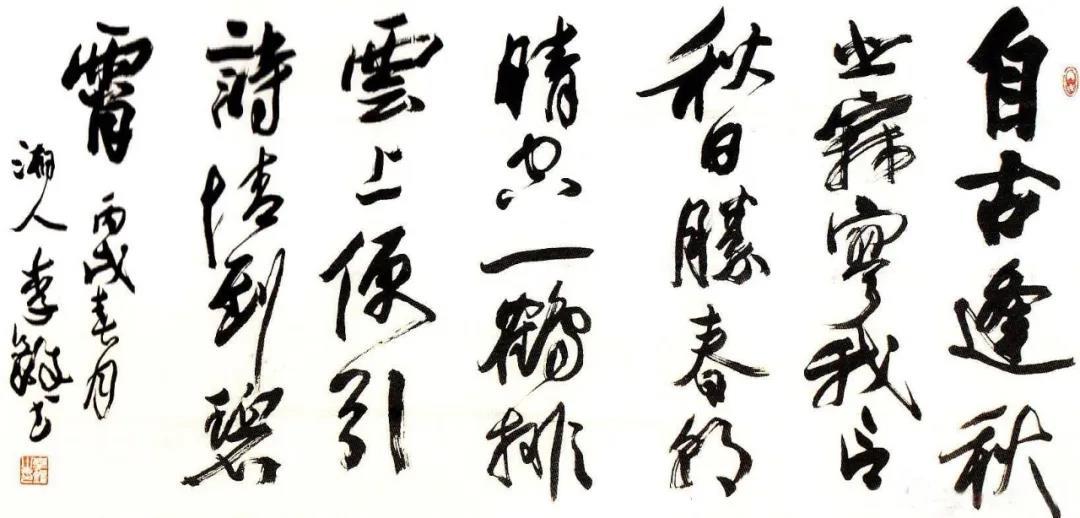 自古逢秋
悲寂寥我言
秋日勝春朝
晴空一鶴排
雲上便引
詩情到碧
霄 丙戌春月
湘人李鐸书